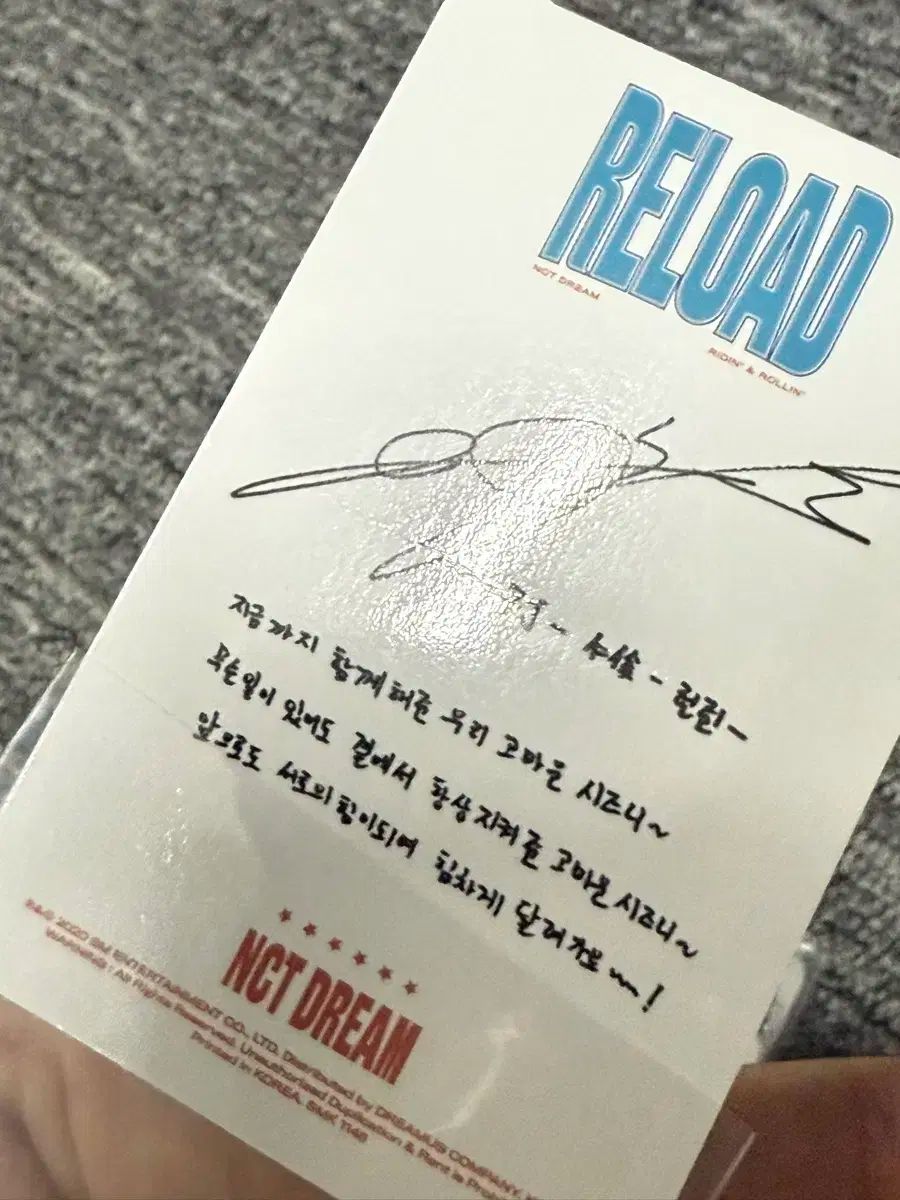 RELOAD
NCT DREAM
RIDIN' & ROLLIN'
런쥔~
지금까지 함께해준 우리 고마운 시즈니~
무슨일이 있어도 곁에서 항상지켜줄 고마운시즈니~
앞으로도 서로의힘이되여 힘차게 달려가보~~~!
NCT DREAM
℗&© 2020 SM ENTERTAINMENT CO., LTD. Distributed by DREAMUS COMPANY.
WARNING : All Rights Reserved. Unauthorised Duplication & Rent is
Printed in KOREA. SMK 1148